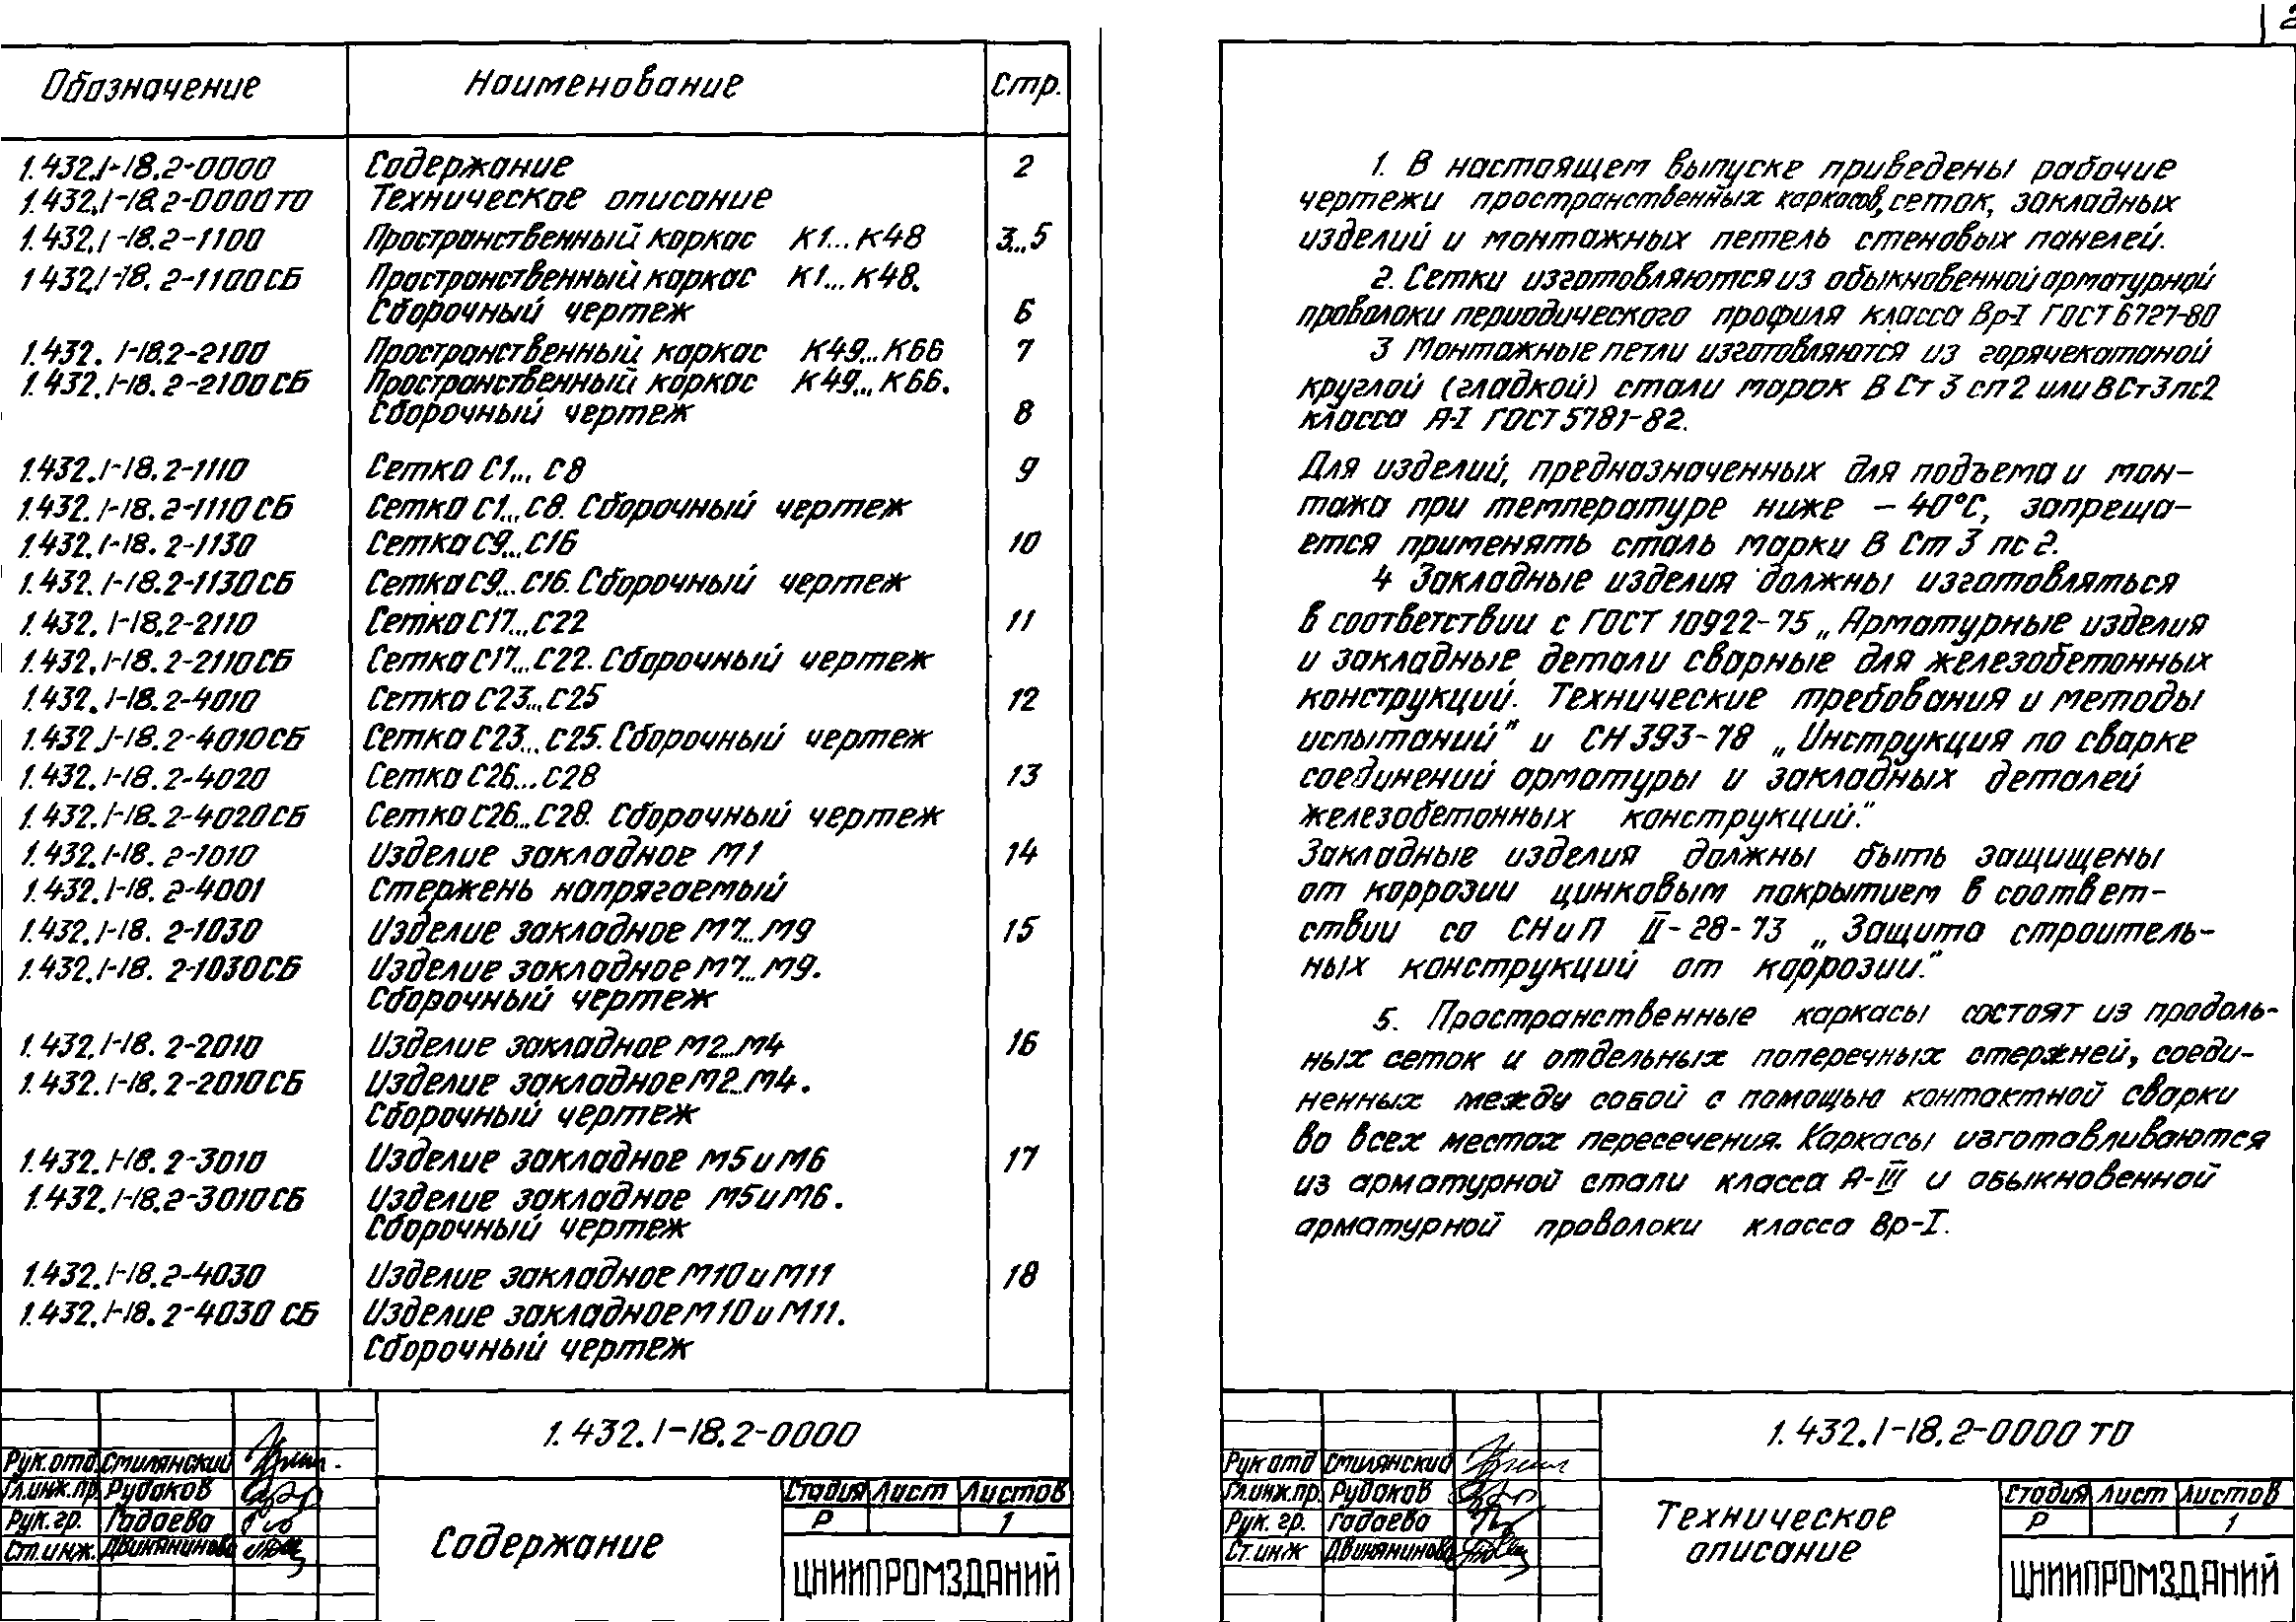 2
Обозначение Наименование Стр.
1.432.1-18.2-0000 Содержание 2
1.432.1-18.2-0000ТО Техническое описание
1.432.1-18.2-1100 Пространственный каркас К1...К48 3...5
1.432.1-18.2-1100СБ Пространственный каркас К1...К48.
Сборочный чертеж 6
1.432.1-18.2-2100 Пространственный каркас К49...К66 7
1.432.1-18.2-2100СБ Пространственный каркас К49...К66.
Сборочный чертеж 8
1.432.1-18.2-1110 Сетка С1...С8 9
1.432.1-18.2-1110СБ Сетка С1...С8. Сборочный чертеж
1.432.1-18.2-1130 Сетка С9...С16 10
1.432.1-18.2-1130СБ Сетка С9...С16. Сборочный чертеж
1.432.1-18.2-2110 Сетка С17...С22 11
1.432.1-18.2-2110СБ Сетка С17...С22. Сборочный чертеж
1.432.1-18.2-4010 Сетка С23...С25 12
1.432.1-18.2-4010СБ Сетка С23...С25. Сборочный чертеж
1.432.1-18.2-4020 Сетка С26...С28 13
1.432.1-18.2-4020СБ Сетка С26...С28. Сборочный чертеж
1.432.1-18.2-1010 Изделие закладное М1 14
1.432.1-18.2-4001 Стержень напрягаемый
1.432.1-18.2-1030 Изделие закладное М7...М9 15
1.432.1-18.2-1030СБ Изделие закладное М7...М9.
Сборочный чертеж
1.432.1-18.2-2010 Изделие закладное М2...М4 16
1.432.1-18.2-2010СБ Изделие закладное М2...М4.
Сборочный чертеж
1.432.1-18.2-3010 Изделие закладное М5 и М6 17
1.432.1-18.2-3010СБ Изделие закладное М5 и М6.
Сборочный чертеж
1.432.1-18.2-4030 Изделие закладное М10 и М11 18
1.432.1-18.2-4030 СБ Изделие закладное М10 и М11.
Сборочный чертеж
1.432.1-18.2-0000
Рук.отд. Смилянский
Гл.инж.пр. Рудаков
Рук.гр. Гадаева
Ст.инж. Двинянинова
Содержание
Стадия Лист Листов
Р 1
ЦНИИПРОМЗДАНИЙ
1. В настоящем выпуске приведены рабочие
чертежи пространственных каркасов, сеток, закладных
изделий и монтажных петель стеновых панелей.
2. Сетки изготовляются из обыкновенной арматурной
проволоки периодического профиля класса Вр-I ГОСТ 6727-80
3 Монтажные петли изготовляются из горячекатаной
круглой (гладкой) стали марок В Ст 3 сп 2 или В Ст 3 пс 2
класса А-I ГОСТ 5781-82.
Для изделий, предназначенных для подъема и мон-
тажа при температуре ниже - 40°С, запреща-
ется применять сталь марки В Ст 3 пс 2.
4 Закладные изделия должны изготовляться
в соответствии с ГОСТ 10922-75 „Арматурные изделия
и закладные детали сварные для железобетонных
конструкций. Технические требования и методы
испытаний" и СН 393-78 „Инструкция по сварке
соединений арматуры и закладных деталей
железобетонных конструкций".
Закладные изделия должны быть защищены
от коррозии цинковым покрытием в соответ-
ствии со СНиП II-28-73 „Защита строитель-
ных конструкций от коррозии".
5. Пространственные каркасы состоят из продоль-
ных сеток и отдельных поперечных стержней, соеди-
ненных между собой с помощью контактной сварки
во всех местах пересечения. Каркасы изготавливаются
из арматурной стали класса А-III и обыкновенной
арматурной проволоки класса Вр-I.
1.432.1-18.2-0000 ТО
Рук отд Смилянский
Гл.инж.пр. Рудаков
Рук. гр. Гадаева
Ст.инж Двинянинова
Техническое
описание
Стадия Лист Листов
Р 1
ЦНИИПРОМЗДАНИЙ